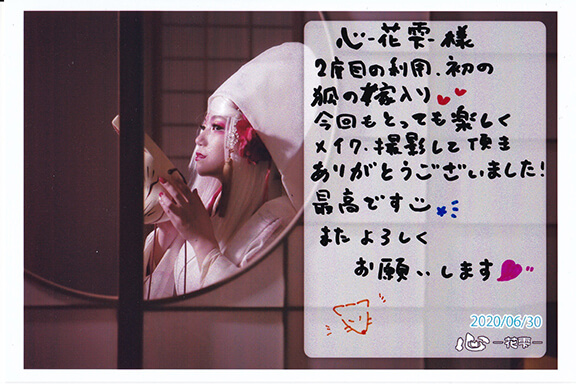 心-花雫-様
2度目の利用、初の
狐の嫁入り
今回もとっても楽しく
メイク、撮影して頂き
ありがとうございました!
最高です
またよろしく
お願いします
2020/06/30
心-花雫-